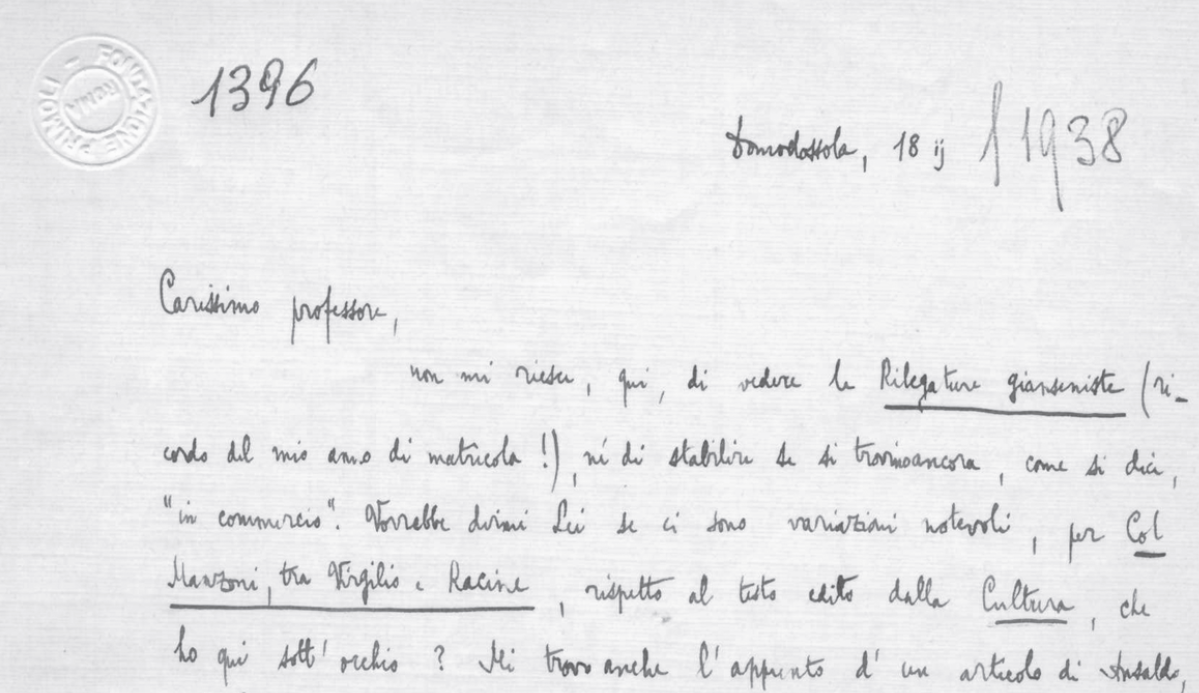 FONDAZIONE PRIMOLI - ROMA
1396
Domodossola, 18 ij 1938
Carissimo professore,
non mi riesce, qui, di vedere le Rilegature gianseniste (ri-
cordo del mio anno di matricola!), né di stabilire se si trovino ancora, come si dice,
"in commercio". Vorrebbe dirmi Lei se ci sono variazioni notevoli, per Col
Manzoni, tra Virgilio e Racine, rispetto al testo edito dalla Cultura, che
ho qui sott'occhio? Mi trovo anche l'appunto d'un articolo di Ansaldo,